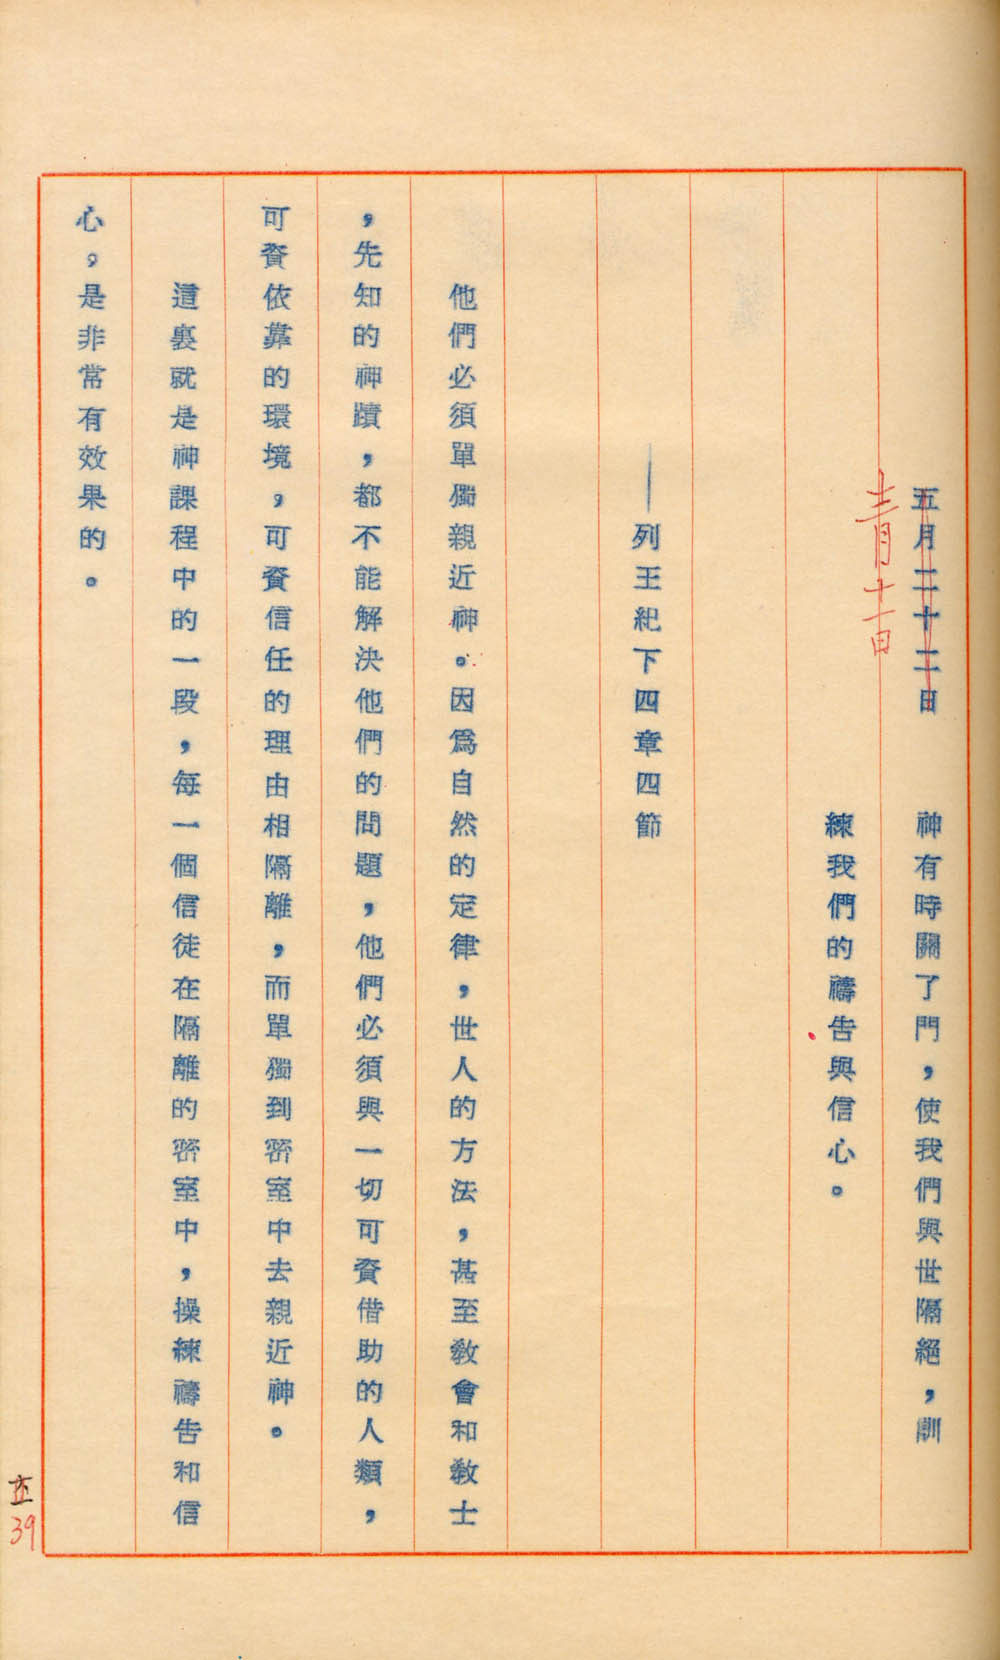 五月二十二日　神有時關了門，使我們與世隔絕，訓
十二月十一日
練我們的禱告與信心。
——列王紀下四章四節
他們必須單獨親近神。因爲自然的定律，世人的方法，甚至教會和教士
，先知的神蹟，都不能解決他們的問題，他們必須與一切可資借助的人類，
可資依靠的環境，可資信任的理由相隔離，而單獨到密室中去親近神。
這裏就是神課程中的一段，每一個信徒在隔離的密室中，操練禱告和信
心，是非常有效果的。
39